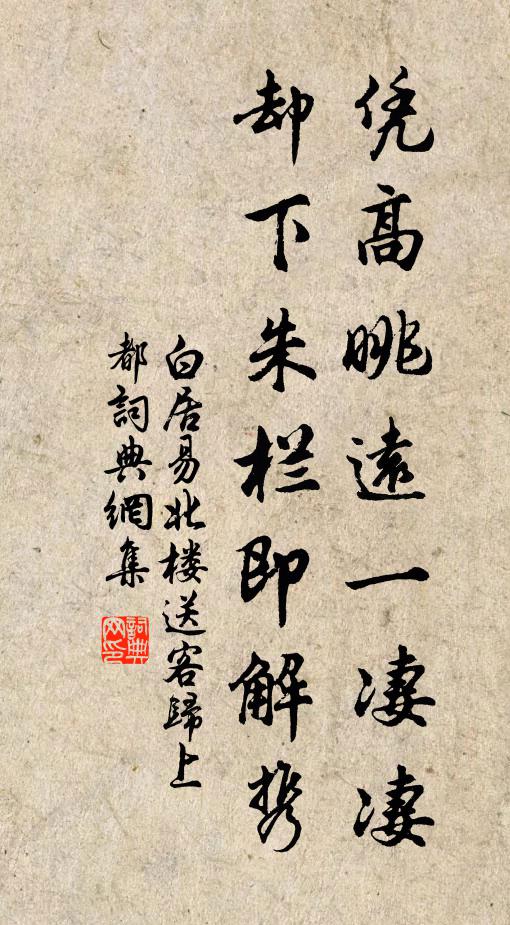 凭高眺遠一凄凄
却下朱栏即解携
白居易北楼送客歸上
都詞典網集
詞典
网印